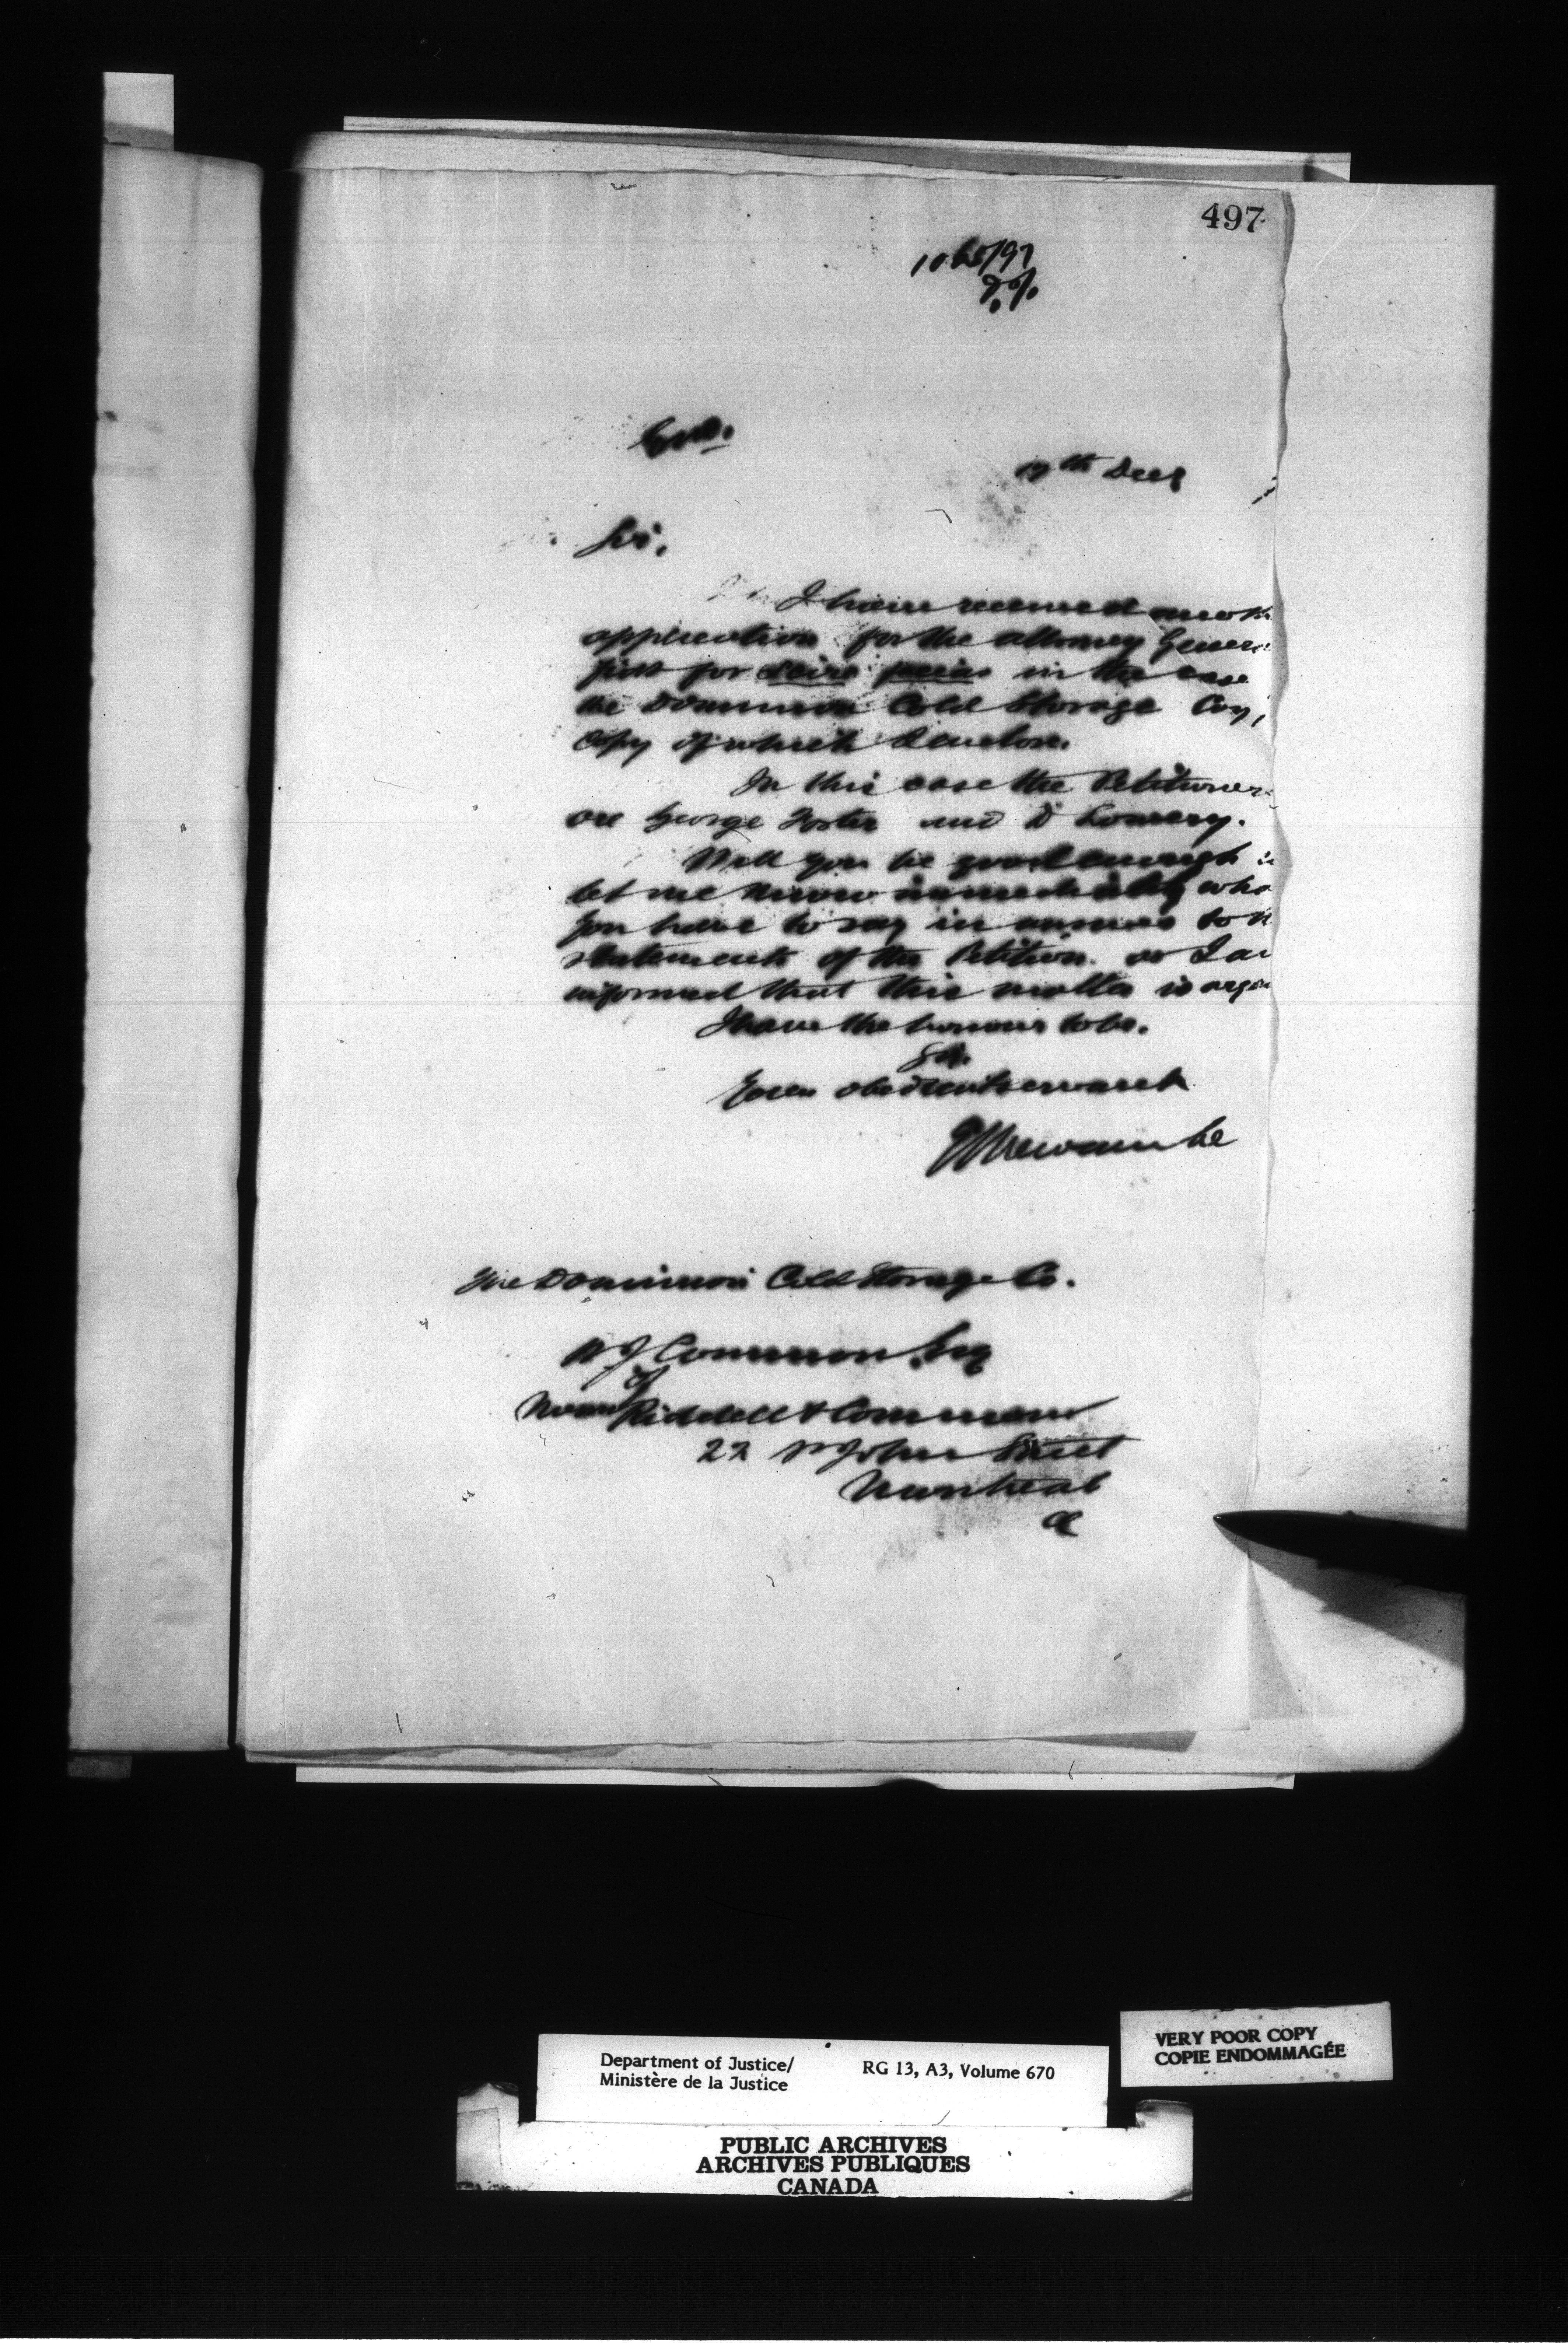 497
1065/97
17th Decr
Sir,
I have received anoth
application for the Attorney Genera
fiat for scire facias in the case
the Dominion Cold Storage Coy,
copy of which I enclose.
In this case the Petitioner
are George Foster and D Lowery.
Will you be good enough
let me know immediately wha
you have to say in answer to th
statements of the Petition as I am
informed that this matter is urgen
I have the honour to be.
Sir.
Your obedient servant
Newcombe
The Dominion Cold Storage Co.
W J Common Esq
of
Riddell & Common
22 St John Street
Montreal
Department of Justice/
Ministère de la Justice
RG 13, A3, Volume 670
VERY POOR COPY
COPIE ENDOMMAGÉE
PUBLIC ARCHIVES
ARCHIVES PUBLIQUES
CANADA